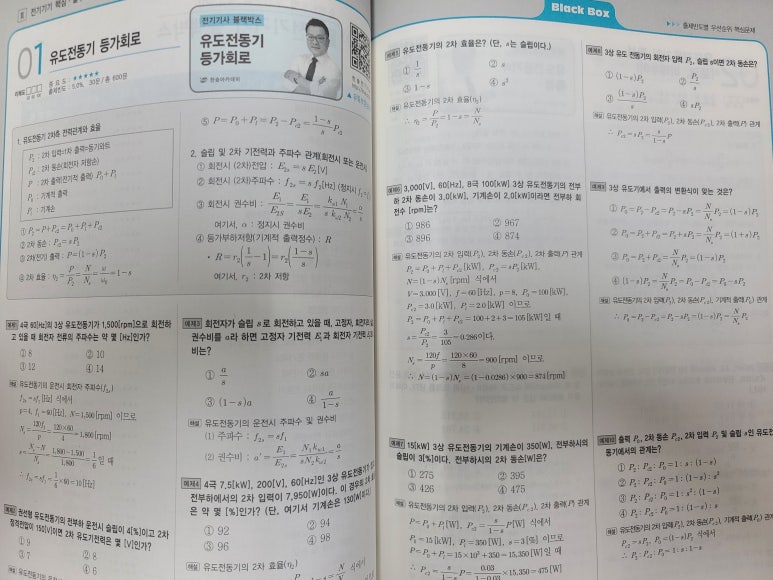 Ⅱ 전기기기 핵심
01 유도전동기 등가회로
중 요 도 : ★★★★★
출제빈도 : 5.0%, 30문 / 총 600문
전기기사 블랙박스
유도전동기
등가회로
한솔아카데미
1. 유도전동기 2차측 전력관계와 효율
P₂ : 2차 입력=1차 출력=동기와트
P_c2 : 2차 동손(회전자 저항손)
P : 2차 출력(전기적 출력) P₀+P_l
P₀ : 기계적 출력
P_l : 기계손
① P₂=P+P_c2=P₀+P_l+P_c2
② 2차 동손 : P_c2=sP₂
③ 2차(전기) 출력 : P=(1-s)P₂
④ 2차 효율 : η₂=P/P₂=N/N_s=ω/ω₀=1-s
⑤ P=P₀+P_l=P₂-P_c2=(1-s)/s P_c2
2. 슬립 및 2차 기전력과 주파수 관계(회전시 또는 운전시
① 회전시 (2차)전압 : E₂s=sE₂[V]
② 회전시 (2차)주파수 : f₂s=sf₂[Hz] (정지시
③ 회전시 권수비 : E₁/E₂s=E₁/sE₂=k_w1 N₁/s k_w2 N₂=α/s
여기서, α : 정지시 권수비
④ 등가부하저항(기계적 출력정수) : R
• R=r₂(1/s-1)=r₂((1-s)/s)
여기서, r₂ : 2차 저항
예제1 4극 60[Hz]의 3상 유도전동기가 1,500[rpm]으로 회전하
고 있을 때 회전자 전류의 주파수는 약 몇 [Hz]인가?
① 8 ② 10
③ 12 ④ 14
해설 유도전동기의 운전시 회전자 주파수(f₂s)
f₂s=sf₁[Hz] 식에서
p=4, f₁=60[Hz], N=1,500[rpm] 이므로
N_s=120f₁/p=120×60/4=1,800[rpm]
s=(N_s-N)/N_s=(1,800-1,500)/1,800=1/6 일 때
∴ f₂s=sf₁=1/6×60=10[Hz]
예제2 권선형 유도전동기의 전부하 운전시 슬립이 4[%]이고 2차
정격전압이 150[V]이면 2차 유도기전력은 몇 [V]인가?
① 9 ② 8
③ 7 ④ 6
예제3 회전자가 슬립 s로 회전하고 있을 때, 고정자, 회전자의
권수비를 α라 하면 고정자 기전력 E₁과 회전자 기전력
비는?
① α/s ② sα
③ (1-s)α ④ α/(1-s)
해설 유도전동기의 운전시 주파수 및 권수비
(1) 주파수 : f₂s=sf₁
(2) 권수비 : α'=E₁/E₂s=N₁k_w1/sN₂k_w2=α/s
예제4 4극 7.5[kW], 200[V], 60[Hz]인 3상 유도전동기가
전부하에서의 2차 입력이 7,950[W]이다. 이 경우의 2차
은 약 몇 [%]인가? (단, 여기서 기계손은 130[W]
① 92 ② 94
③ 96 ④ 98
해설 유도전동기의 2차 효율(η₂)
Black Box
▶▶▶ 출제빈도별 우선순위 핵심문제
예제5 유도전동기의 2차 효율은? (단, s는 슬립이다.)
① 1/s ② s
③ 1-s ④ s²
해설 유도전동기의 2차 효율(η₂)
∴ η₂=P/P₂=1-s=N/N_s
예제6 3,000[V], 60[Hz], 8극 100[kW] 3상 유도전동기의 전부
하 2차 동손이 3.0[kW], 기계손이 2.0[kW]이라면 전부하 회
전수 [rpm]는?
① 986 ② 967
③ 896 ④ 874
해설 유도전동기의 2차 입력(P₂), 2차 동손(P_c2), 2차 출력(P) 관계
P₂=P₀+P_l+P_c2[kW], P_c2=sP₂[kW],
N=(1-s)N_s[rpm] 식에서
V=3,000[V], f=60[Hz], p=8, P₀=100[kW],
P_c2=3.0[kW], P_l=2.0[kW] 이므로
P₂=P₀+P_l+P_c2=100+2+3=105[kW]일 때
s=P_c2/P₂=3/105=0.0286이다.
N_s=120f/p=120×60/8=900[rpm] 이므로
∴ N=(1-s)N_s=(1-0.0286)×900=874[rpm]
예제7 15[kW] 3상 유도전동기의 기계손이 350[W], 전부하시의
슬립이 3[%]이다. 전부하시의 2차 동손[W]은?
① 275 ② 395
③ 426 ④ 475
해설 유도전동기의 2차 입력(P₂), 2차 동손(P_c2), 2차 출력(P) 관계
P=P₀+P_l[W], P_c2=s/(1-s) P[W] 식에서
P₀=15[kW], P_l=350[W], s=3[%] 이므로
P=P₀+P_l=15×10³+350=15,350[W]일 때
∴ P_c2=s/(1-s) P=0.03/(1-0.03)×15,350=475[W]
예제8 3상 유도 전동기의 회전자 입력 P₂, 슬립 s이면 2차 동손은?
① (1-s)P₂ ② P₂/s
③ (1-s)P₂/s ④ sP₂
해설 유도전동기의 2차 입력(P₂), 2차 동손(P_c2), 2차 출력(P) 관계
∴ P_c2=sP₂=s/(1-s) P
예제9 3상 유도기에서 출력의 변환식이 맞는 것은?
① P₀=P₂-P_c2=P₂-sP₂=N/N_s P₂=(1-s)P₂
② P₀=P₂+P_c2=P₂+sP₂=N/N_s P₂=(1+s)P₂
③ P₀=P₂+P_c2=N/N_s P₂=(1-s)P₂
④ (1-s)P₂=N/N_s P₂=P₀-P_c2=P₀-sP₂
해설 유도전동기의 2차 입력(P₂), 2차 동손(P_c2), 기계적 출력(P₀) 관계
예제10 출력 P₀, 2차 동손 P_c2, 2차 입력 P₂ 및 슬립 s인 유도
동기에서의 관계는?
① P₂ : P_c2 : P₀=1 : s : (1-s)
② P₂ : P_c2 : P₀=1 : (1-s) : s²
③ P₂ : P_c2 : P₀=1 : s² : (1-s)
④ P₂ : P_c2 : P₀=1 : (1-s) : s
해설 유도전동기의 2차 입력(P₂), 2차 동손(P_c2), 기계적 출력(P₀) 관
P_c2=sP₂, P₀=(1-s)P₂ 이므로